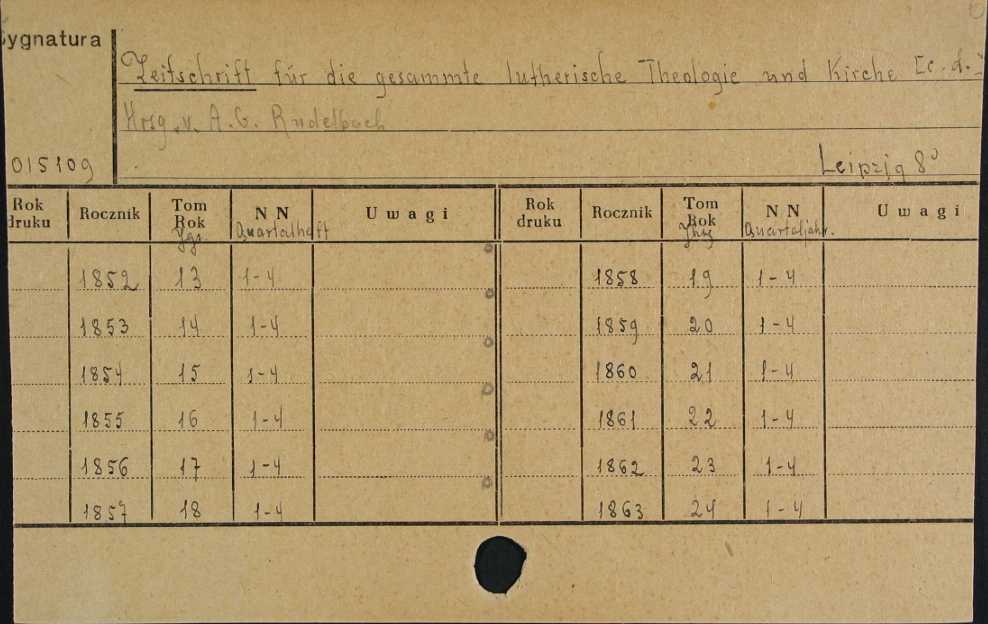 Sygnatura
Zeitschrift für die gesammte lutherische Theologie und Kirche [c.d.
Hrsg. v. A. G. Rudelbach
015109
Leipzig 8°
Rok druku | Rocznik | Tom Rok Jgg. | N N Quartalheft | Uwagi | Rok druku | Rocznik | Tom Rok Jhrg | N N Quartaljahr. | Uwagi
1852 | 13 | 1-4 | 1858 | 19 | 1-4
1853 | 14 | 1-4 | 1859 | 20 | 1-4
1854 | 15 | 1-4 | 1860 | 21 | 1-4
1855 | 16 | 1-4 | 1861 | 22 | 1-4
1856 | 17 | 1-4 | 1862 | 23 | 1-4
1857 | 18 | 1-4 | 1863 | 24 | 1-4